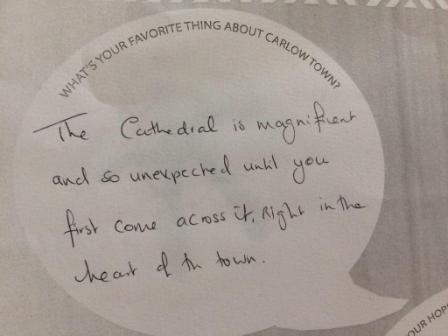 WHAT'S YOUR FAVORITE THING ABOUT CARLOW TOWN?
The Cathedral is magnificent
and so unexpected until you
first come across it, right in the
heart of the town.
OUR HOP